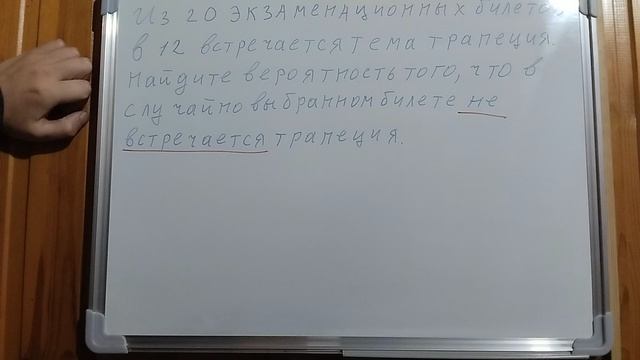 Из 20 экзаменационных билетов,
в 12 встречается тема трапеция.
Найдите вероятность того, что в
случайно выбранном билете не
встречается трапеция.